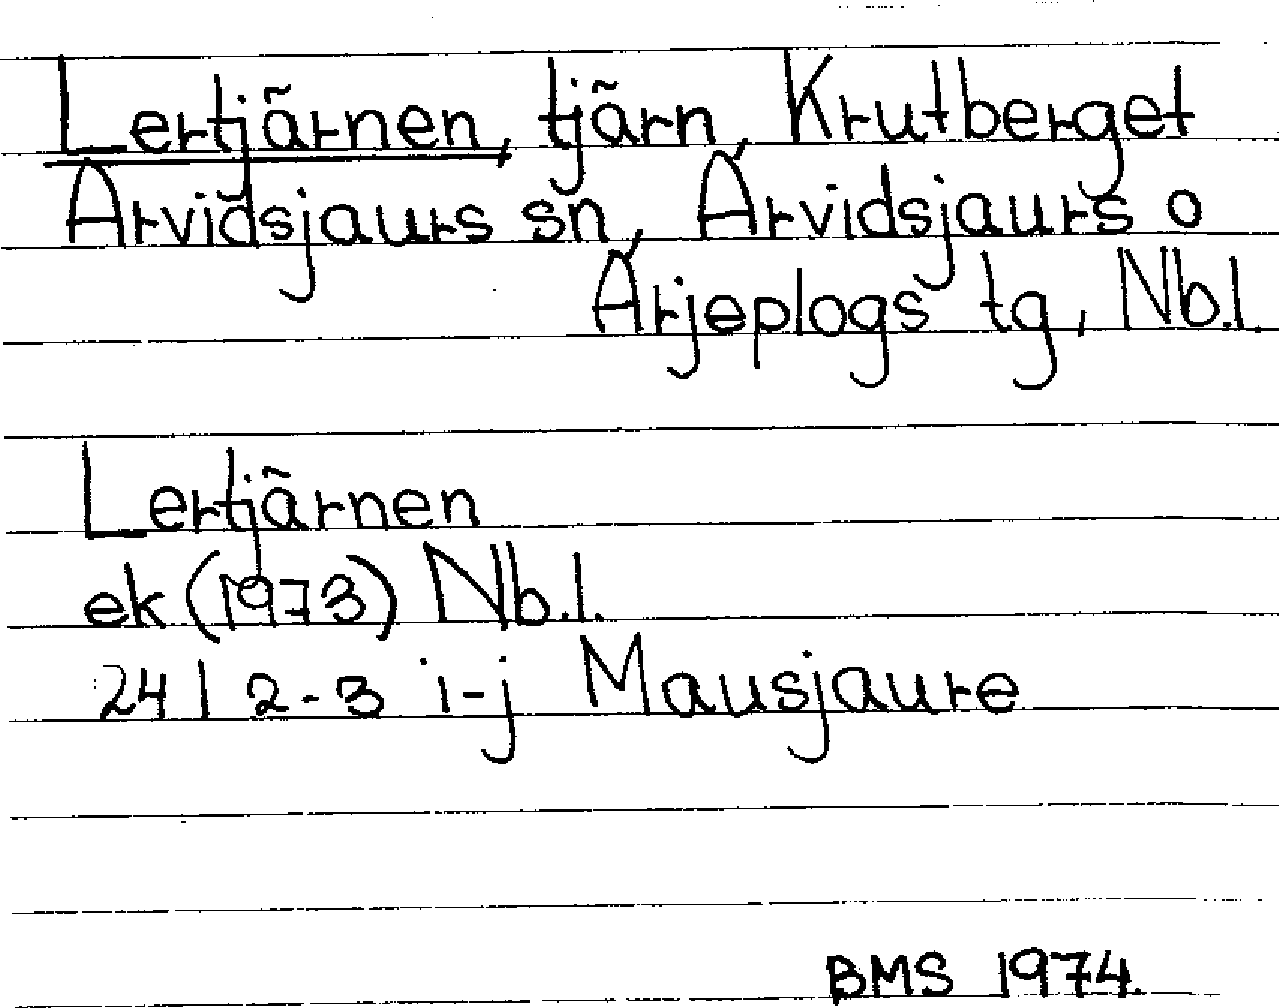 Lertjärnen, tjärn, Krutberget
Arvidsjaurs sn, Arvidsjaurs o
Arjeplogs tg, Nb.l.
Lertjärnen
ek (1973) Nb.l.
24 I 2-3 i-j Mausjaure
BMS 1974.